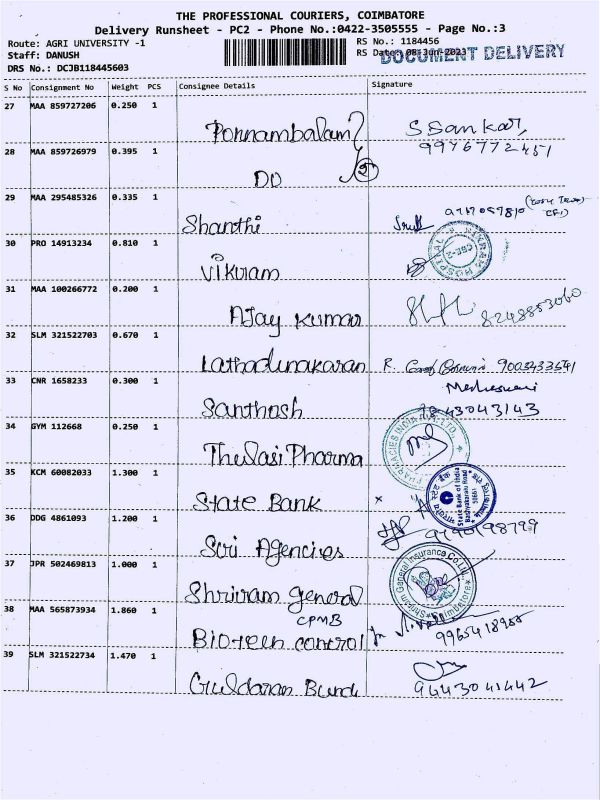 THE PROFESSIONAL COURIERS, COIMBATORE
Delivery Runsheet - PC2 - Phone No.:0422-3505555 - Page No.:3
Route: AGRI UNIVERSITY -1
Staff: DANUSH
DRS No.: DCJB118445603
RS No.: 1184456
RS Date: 08-Jun-2023
DOCUMENT DELIVERY
S No Consignment No Weight PCS Consignee Details Signature
27 MAA 859727206 0.250 1
Ponnambalam S Sankar,
9976772451
28 MAA 859726979 0.395 1
DO
29 MAA 295485326 0.335 1
Shanthi
30 PRO 14913234 0.810 1
Vikram
VIKRAM HOSPITAL
31 MAA 100266772 0.200 1
Ajay Kumar 8248853060
32 SLM 321522703 0.670 1
Lathadinakaran R.
33 CNR 1658233 0.300 1
Santhosh
43043143
34 GYM 112668 0.250 1
Thulasi Pharma
PHARMACIES INDIA PVT. LTD.
35 KCM 60082033 1.300 1
State Bank
State Bank of India
36 DDG 4861093 1.200 1
Sri Agencies 9190198799
37 JPR 502469813 1.000 1
Shriram general
Shriram General Insurance Co. Ltd.
Coimbatore
38 MAA 565873934 1.860 1
CPMB
Biotech control 9965418955
39 SLM 321522734 1.470 1
9443041442